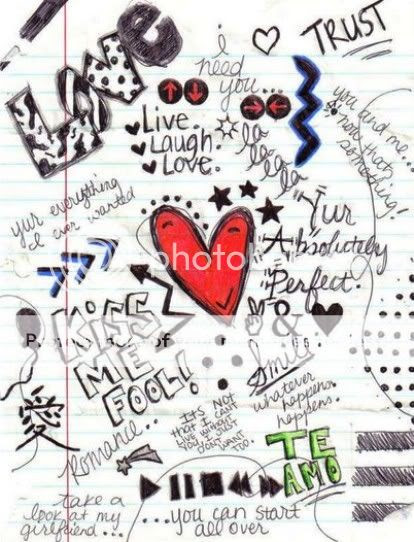 LOVE
i
need
you...
TRUST
Live.
Laugh.
Love.
la
la
la
la
you and me...
now that's
something!
yur everything
i ever wanted
Yur
Absolutely
Perfect.
photob
KISS
ME
FOOL!
&
Smile
whatever
happens.
happens.
IT'S NOT
THAT I CAN'T
LIVE WITHOUT
YOU I JUST
DON'T
WANT
TOO.
愛
Romance...
TE
AMO
take a
look at my
girlfriend...
...you can start
all over